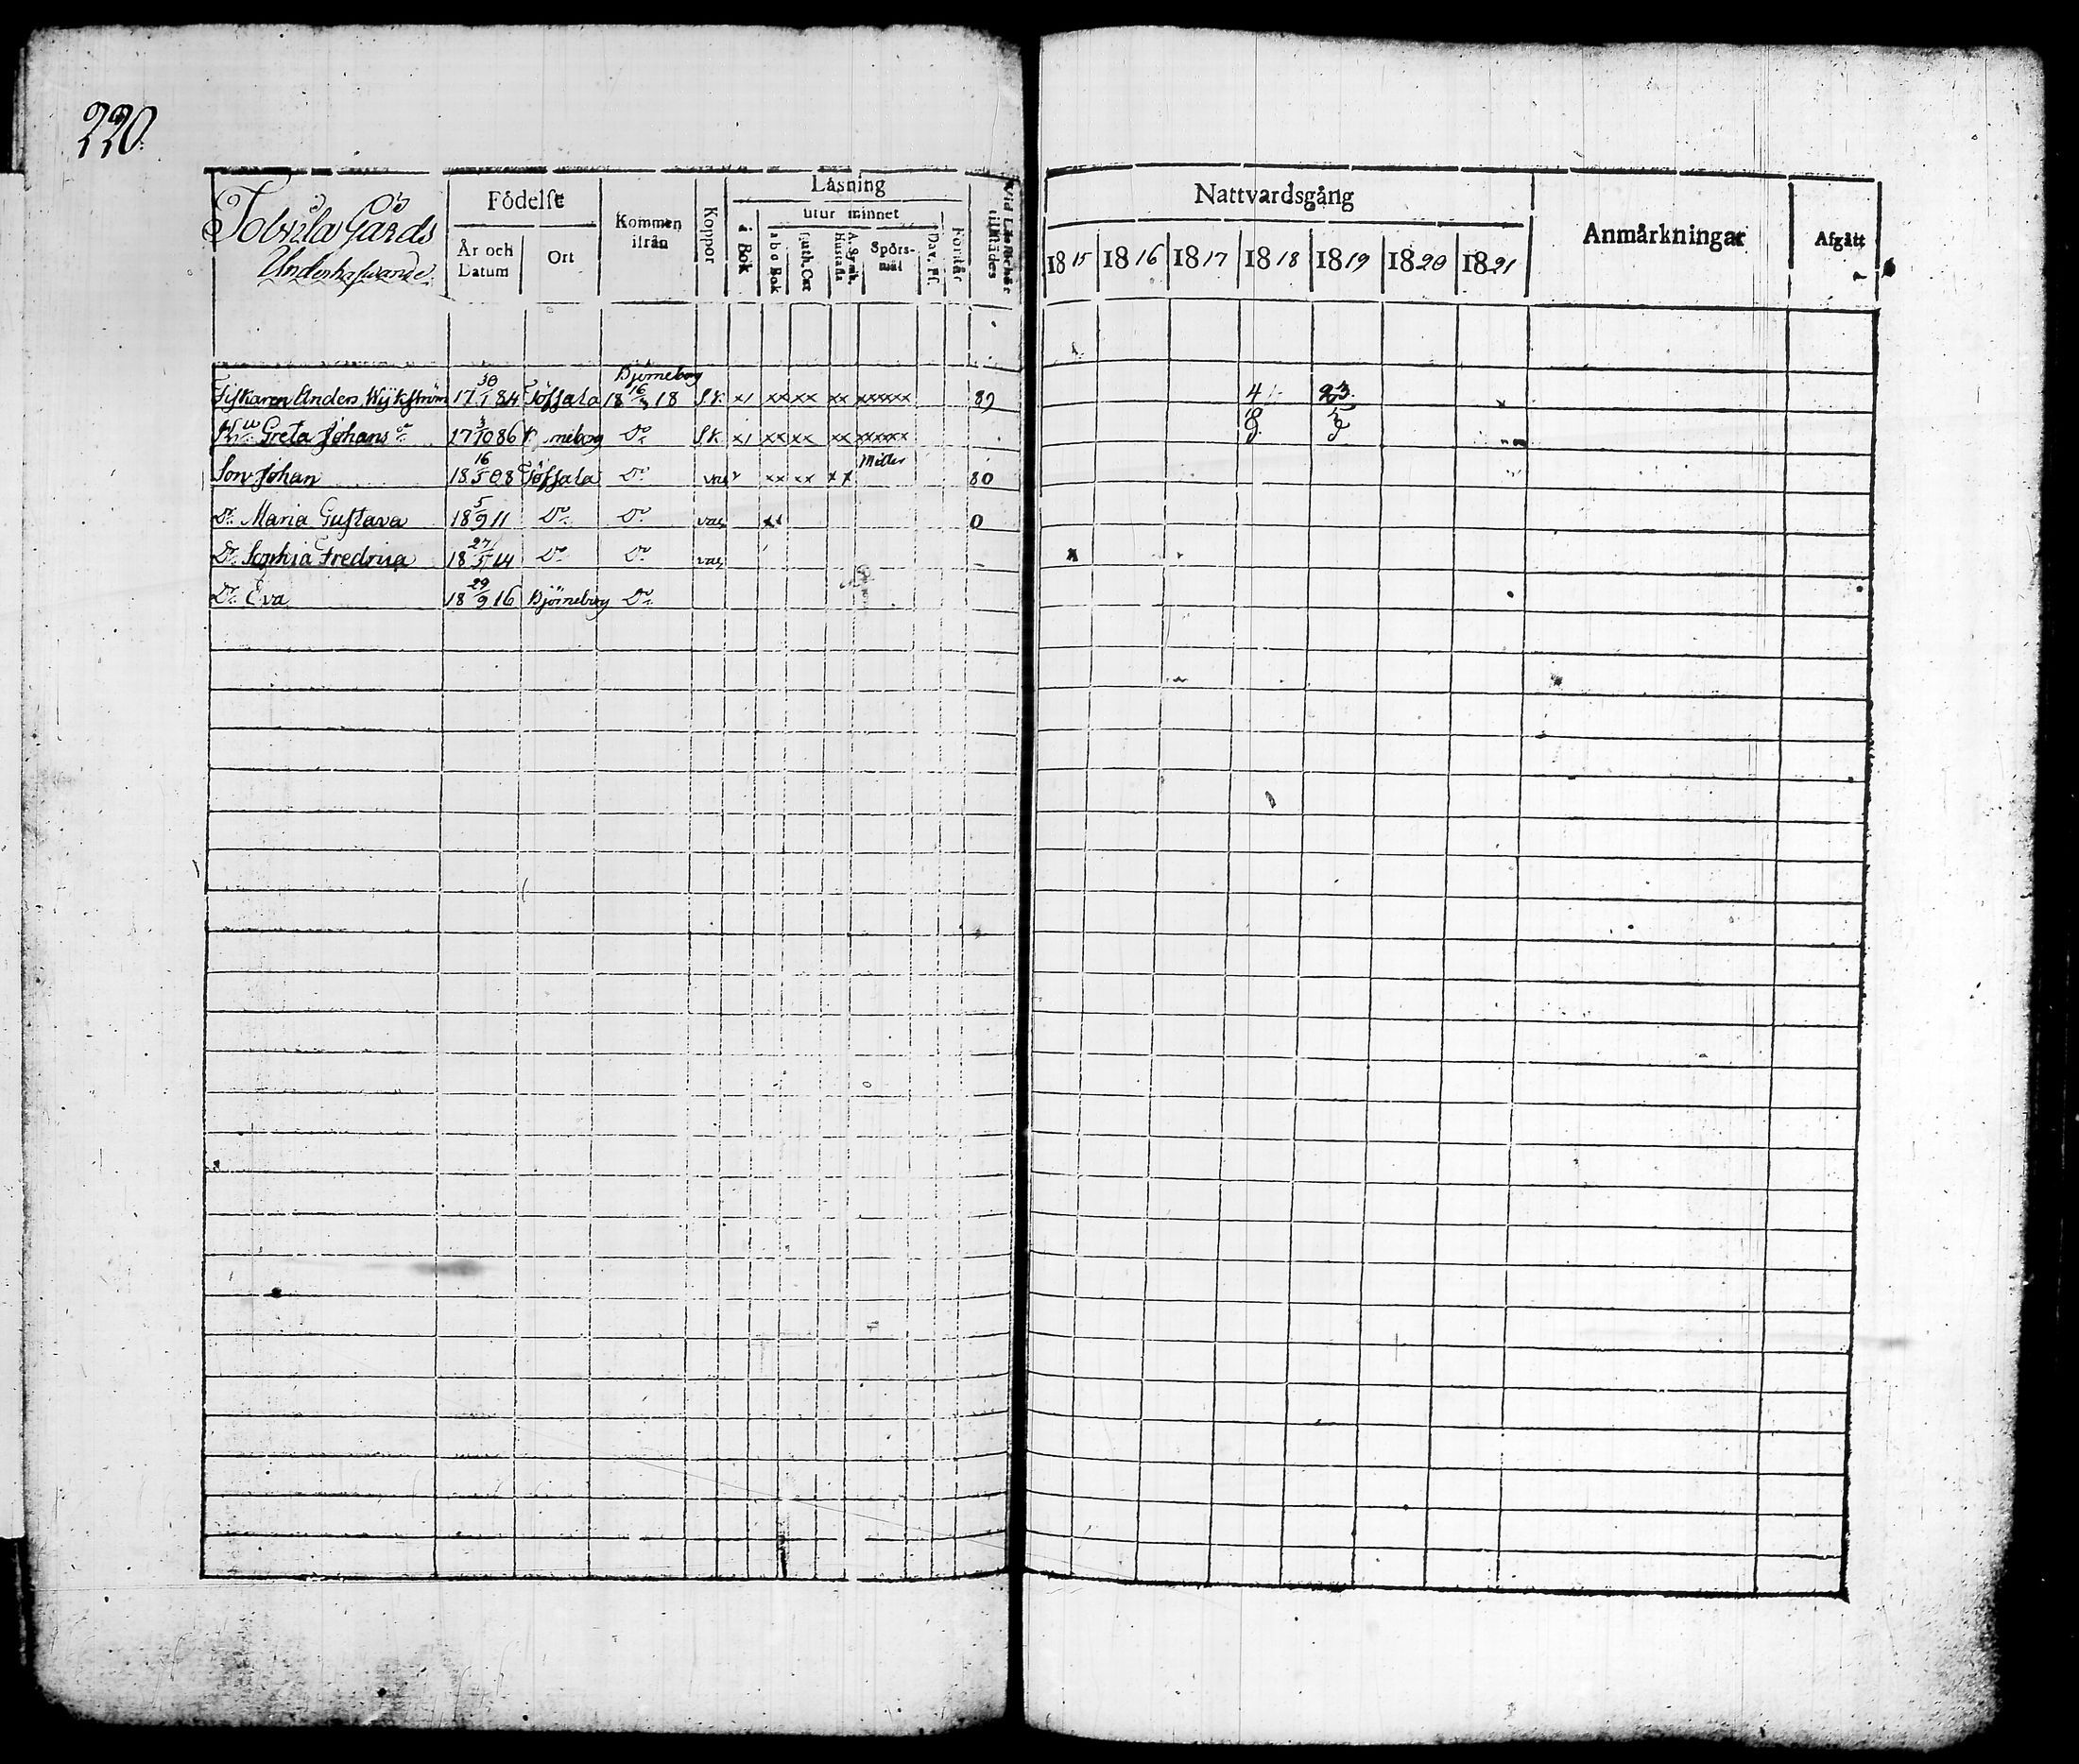 220
Gårds
Underhafvande
Födelse
År och Datum
Ort
Kommen ifrån
Koppor
Läsning
i Bok
utur minnet
a b c Bok
Luth. Cat
A. Symb. Hustafla
Spörsmål
Dav. Ps.
Förstår
Nattvardsgång
1815 1816 1817 1818 1819 1820 1821
Anmärkningar
Afgått
Björneborg
Fiskaren Anders Wykström 17 30/1 84 Töfsala 18 16/3 18 S.k. x1 xx xx xx xxxxxx 89 4 23
Greta Johans dr 17 3/10 86 Do S.k x1 xx xx xx xxxxx
Son Johan 18 16/5 08 Töfsala Do vac xx xx xx 80
Dr Maria Gustava 18 5/9 11 Do Do vac 0
Dr Sophia Fredrica 18 27/5 14 Do Do vac
Dr Eva 18 29/9 16 Björneborg Do